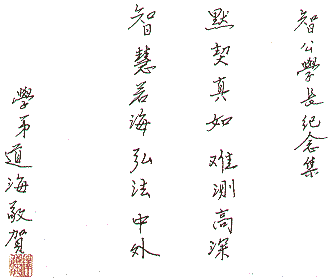 智公學長纪念集
默契真如 难測高深
智慧若海 弘法中外
學弟道海敬賀